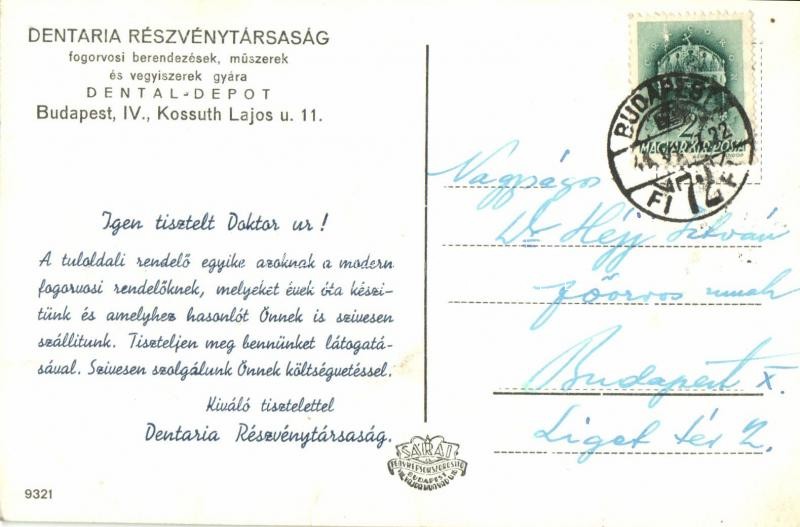 DENTARIA RÉSZVÉNYTÁRSASÁG
fogorvosi berendezések, műszerek
és vegyiszerek gyára
DENTAL-DEPOT
Budapest, IV., Kossuth Lajos u. 11.
Igen tisztelt Doktor ur!
A tuloldali rendelő egyike azoknak a modern
fogorvosi rendelőknek, melyeket évek óta készi-
tünk és amelyhez hasonlót Önnek is szivesen
szállitunk. Tiszteljen meg bennünket látogatá-
sával. Szivesen szolgálunk Önnek költségvetéssel.
Kiváló tisztelettel
Dentaria Részvénytársaság.
9321
SÁRAI
FÉNYKÉPSOKSZOROSITÓ
BUDAPEST
MAGYAR KIR. POSTA
2
BUDAPEST
72
Nagyságos
Dr Héjj István
főorvos urnak
Budapest X.
Liget tér 2.